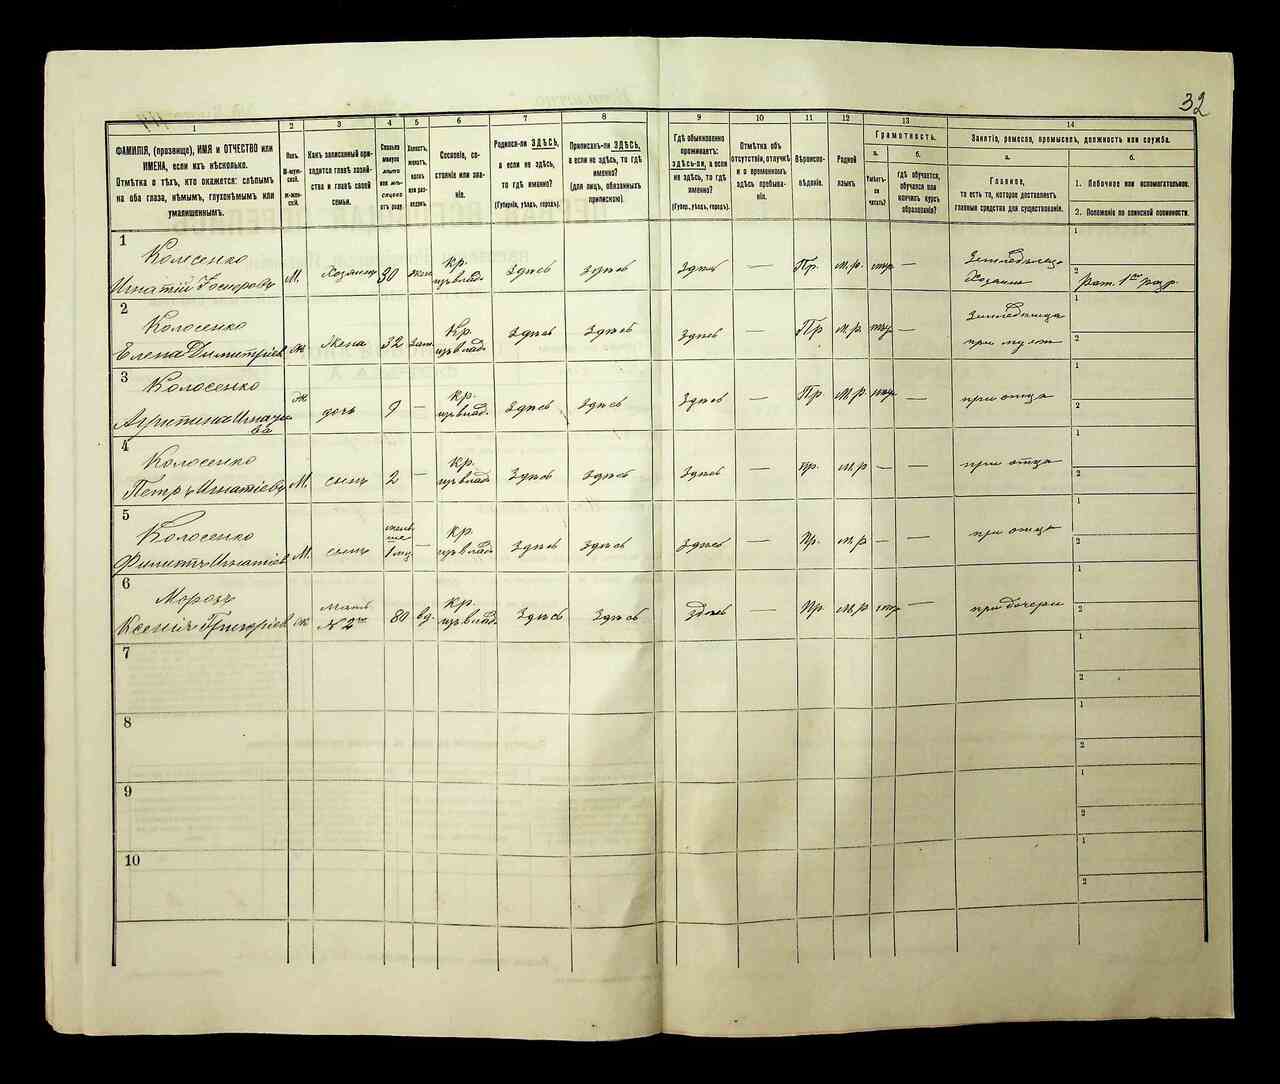 32
1
2
3
4
5
6
7
8
9
10
11
12
13
14
ФАМИЛІЯ, (прозвище), ИМЯ и ОТЧЕСТВО или
ИМЕНА, если ихъ нѣсколько.
Отмѣтка о тѣхъ, кто окажется: слѣпымъ
на оба глаза, нѣмымъ, глухонѣмымъ или
умалишеннымъ.
Полъ.
М-муж-
ской.
Ж-жен-
скій.
Какъ записанный при-
ходится главѣ хозяй-
ства и главѣ своей
семьи.
Сколько
минуло
лѣтъ
или мѣ-
сяцевъ
отъ роду.
Холостъ,
женатъ,
вдовъ
или раз-
веденъ.
Сословіе, со-
стояніе или зва-
ніе.
Родился-ли ЗДѢСЬ,
а если не здѣсь,
то гдѣ именно?
(Губернія, уѣздъ, городъ).
Приписанъ-ли ЗДѢСЬ,
а если не здѣсь, то гдѣ
именно?
(для лицъ, обязанныхъ
припискою).
Гдѣ обыкновенно
проживаетъ:
здѣсь-ли, а если
не здѣсь, то гдѣ
именно?
(Губер., уѣздъ, городъ).
Отмѣтка объ
отсутствіи, отлучкѣ
и о временномъ
здѣсь пребыва-
ніи.
Вѣроиспо-
вѣданіе.
Родной
языкъ.
Грамотность.
а.
Умѣетъ-
ли
читать?
б.
гдѣ обучается,
обучался или
кончилъ курсъ
образованія?
Занятіе, ремесло, промыселъ, должность или служба.
а.
Главное,
то есть то, которое доставляетъ
главныя средства для существованія.
б.
1. Побочное или вспомогательное.
2. Положеніе по воинской повинности.
1
Колосенко
Игнатій М. Хозяинъ 30 жен. Кр. изъ влад. Здѣсь Здѣсь Здѣсь — Пр. М.р. —
Хозяинъ
1
2 рат. 1го разр.
2
Колосенко
Елена Димитріев Ж Жена 32 зам. Кр. изъ влад. Здѣсь Здѣсь Здѣсь — Пр М.р. —
при мужѣ
1
2
3
Колосенко
ва Ж дочь 9 — Кр. изъ влад. Здѣсь Здѣсь Здѣсь — Пр М.р. —
при отцѣ
1
2
4
Колосенко
Петръ Игнатіевъ М. сынъ 2 — Кр. изъ влад. Здѣсь Здѣсь Здѣсь — пр. М.р — —
при отцѣ
1
2
5
Колосенко
Филиппъ Игнатіев М. сынъ 1 — Кр. изъ влад. Здѣсь Здѣсь Здѣсь — Пр. М.р — —
при отцѣ
1
2
6
Морозъ
Ксенія Григоріев Ж Мать № 2го 80 вд. Кр. изъ влад. Здѣсь Здѣсь Здѣсь — Пр. М.р —
при дочери
1
2
7
1
2
8
1
2
9
1
2
10
1
2